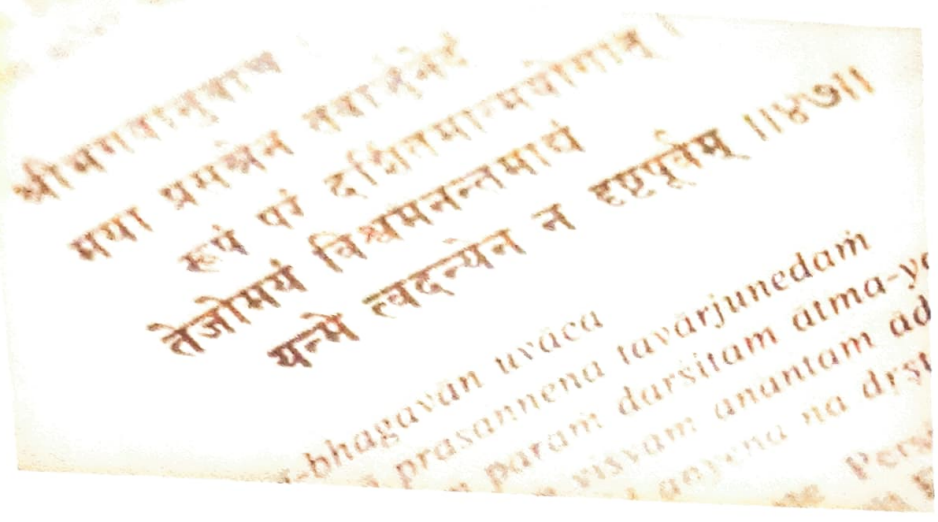 श्रीभगवानुवाच
मया प्रसन्नेन तवार्जुनेदं
रूपं परं दर्शितमात्मयोगात् ।
तेजोमयं विश्वमनन्तमाद्यं
यन्मे त्वदन्येन न दृष्टपूर्वम् ॥४७॥
-bhagavān uvāca
prasannena tavārjunedaṁ
paraṁ darśitam ātma-yo
viśvam anantam ād
anyena na dṛṣṭ